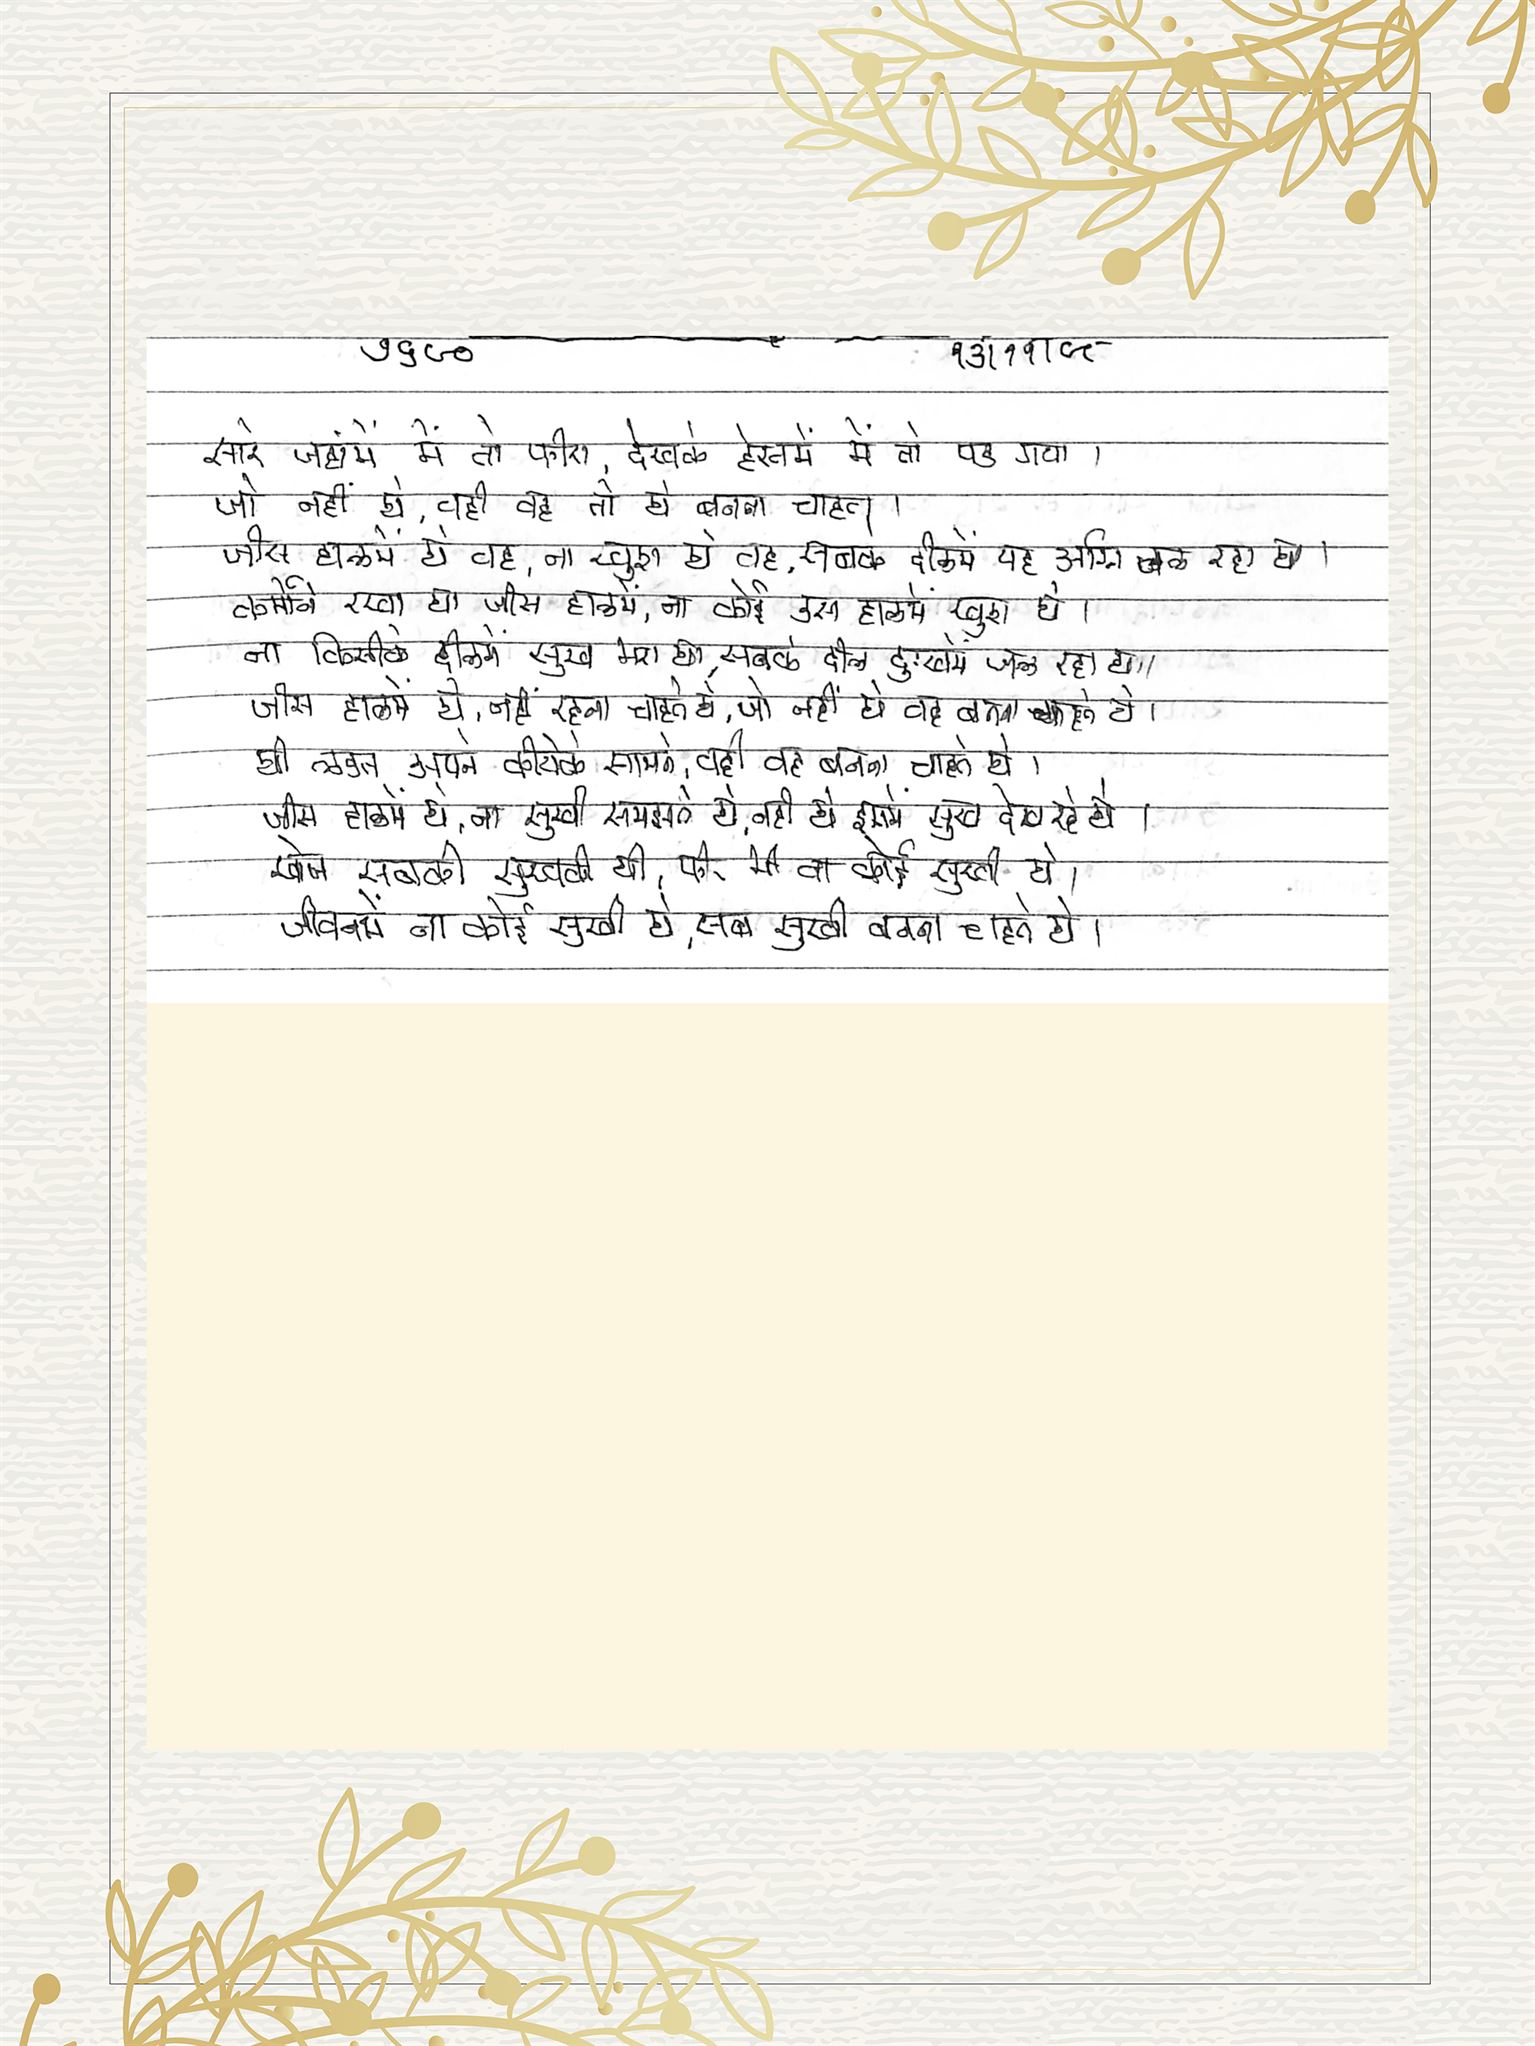 ७६८० १३।११।८५
सारे जहाँमें में तो फीरा, देखके हेरतमें में तो पड गया ।
जो नहीं थे, वही वह तो थे बनना चाहता ।
जीस हालमें थे वह, ना खुश थे वह, सबके दीलमें यह अग्नि जल रहा था ।
कर्मोने रखा था जीस हालमें, ना कोई उस हालमें खुश थे ।
ना किसीके दीलमें सुख भरा था, सबके दील दुःखमें जल रहा था।
जीस हालमें थे, नहीं रहना चाहते थे, जो नहीं थे वह बनना चाहते थे ।
थी अपने कीयेके सामने, वही वह बनना चाहते थे ।
जीस हालमें थे, ना सुखी समझते थे, नही थे इसमें सुख देख रहे थे ।
खोज सबकी सुखकी थी, फीर भी ना कोई सुखी थे ।
जीवनमें ना कोई सुखी थे, सब सुखी बनना चाहते थे ।